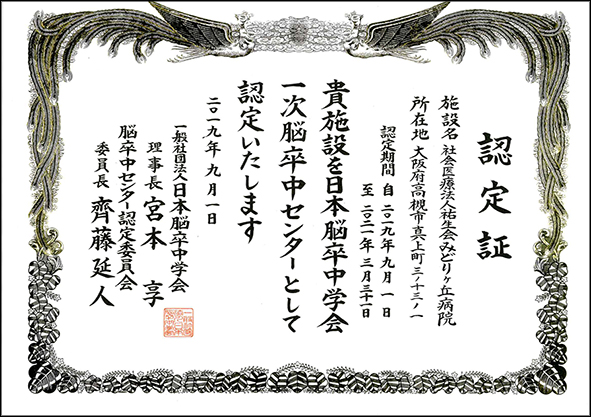 認定証
施設名 社会医療法人祐生会みどりヶ丘病院
所在地 大阪府高槻市真上町三ノ十三ノ一
認定期間 自 二〇一九年 九月 一日
至 二〇二一年 三月三十一日
貴施設を日本脳卒中学会
一次脳卒中センターとして
認定いたします
二〇一九年 九月一日
一般社団法人日本脳卒中学会
理事長 宮本 享
脳卒中センター認定委員会
委員長 齊藤延人